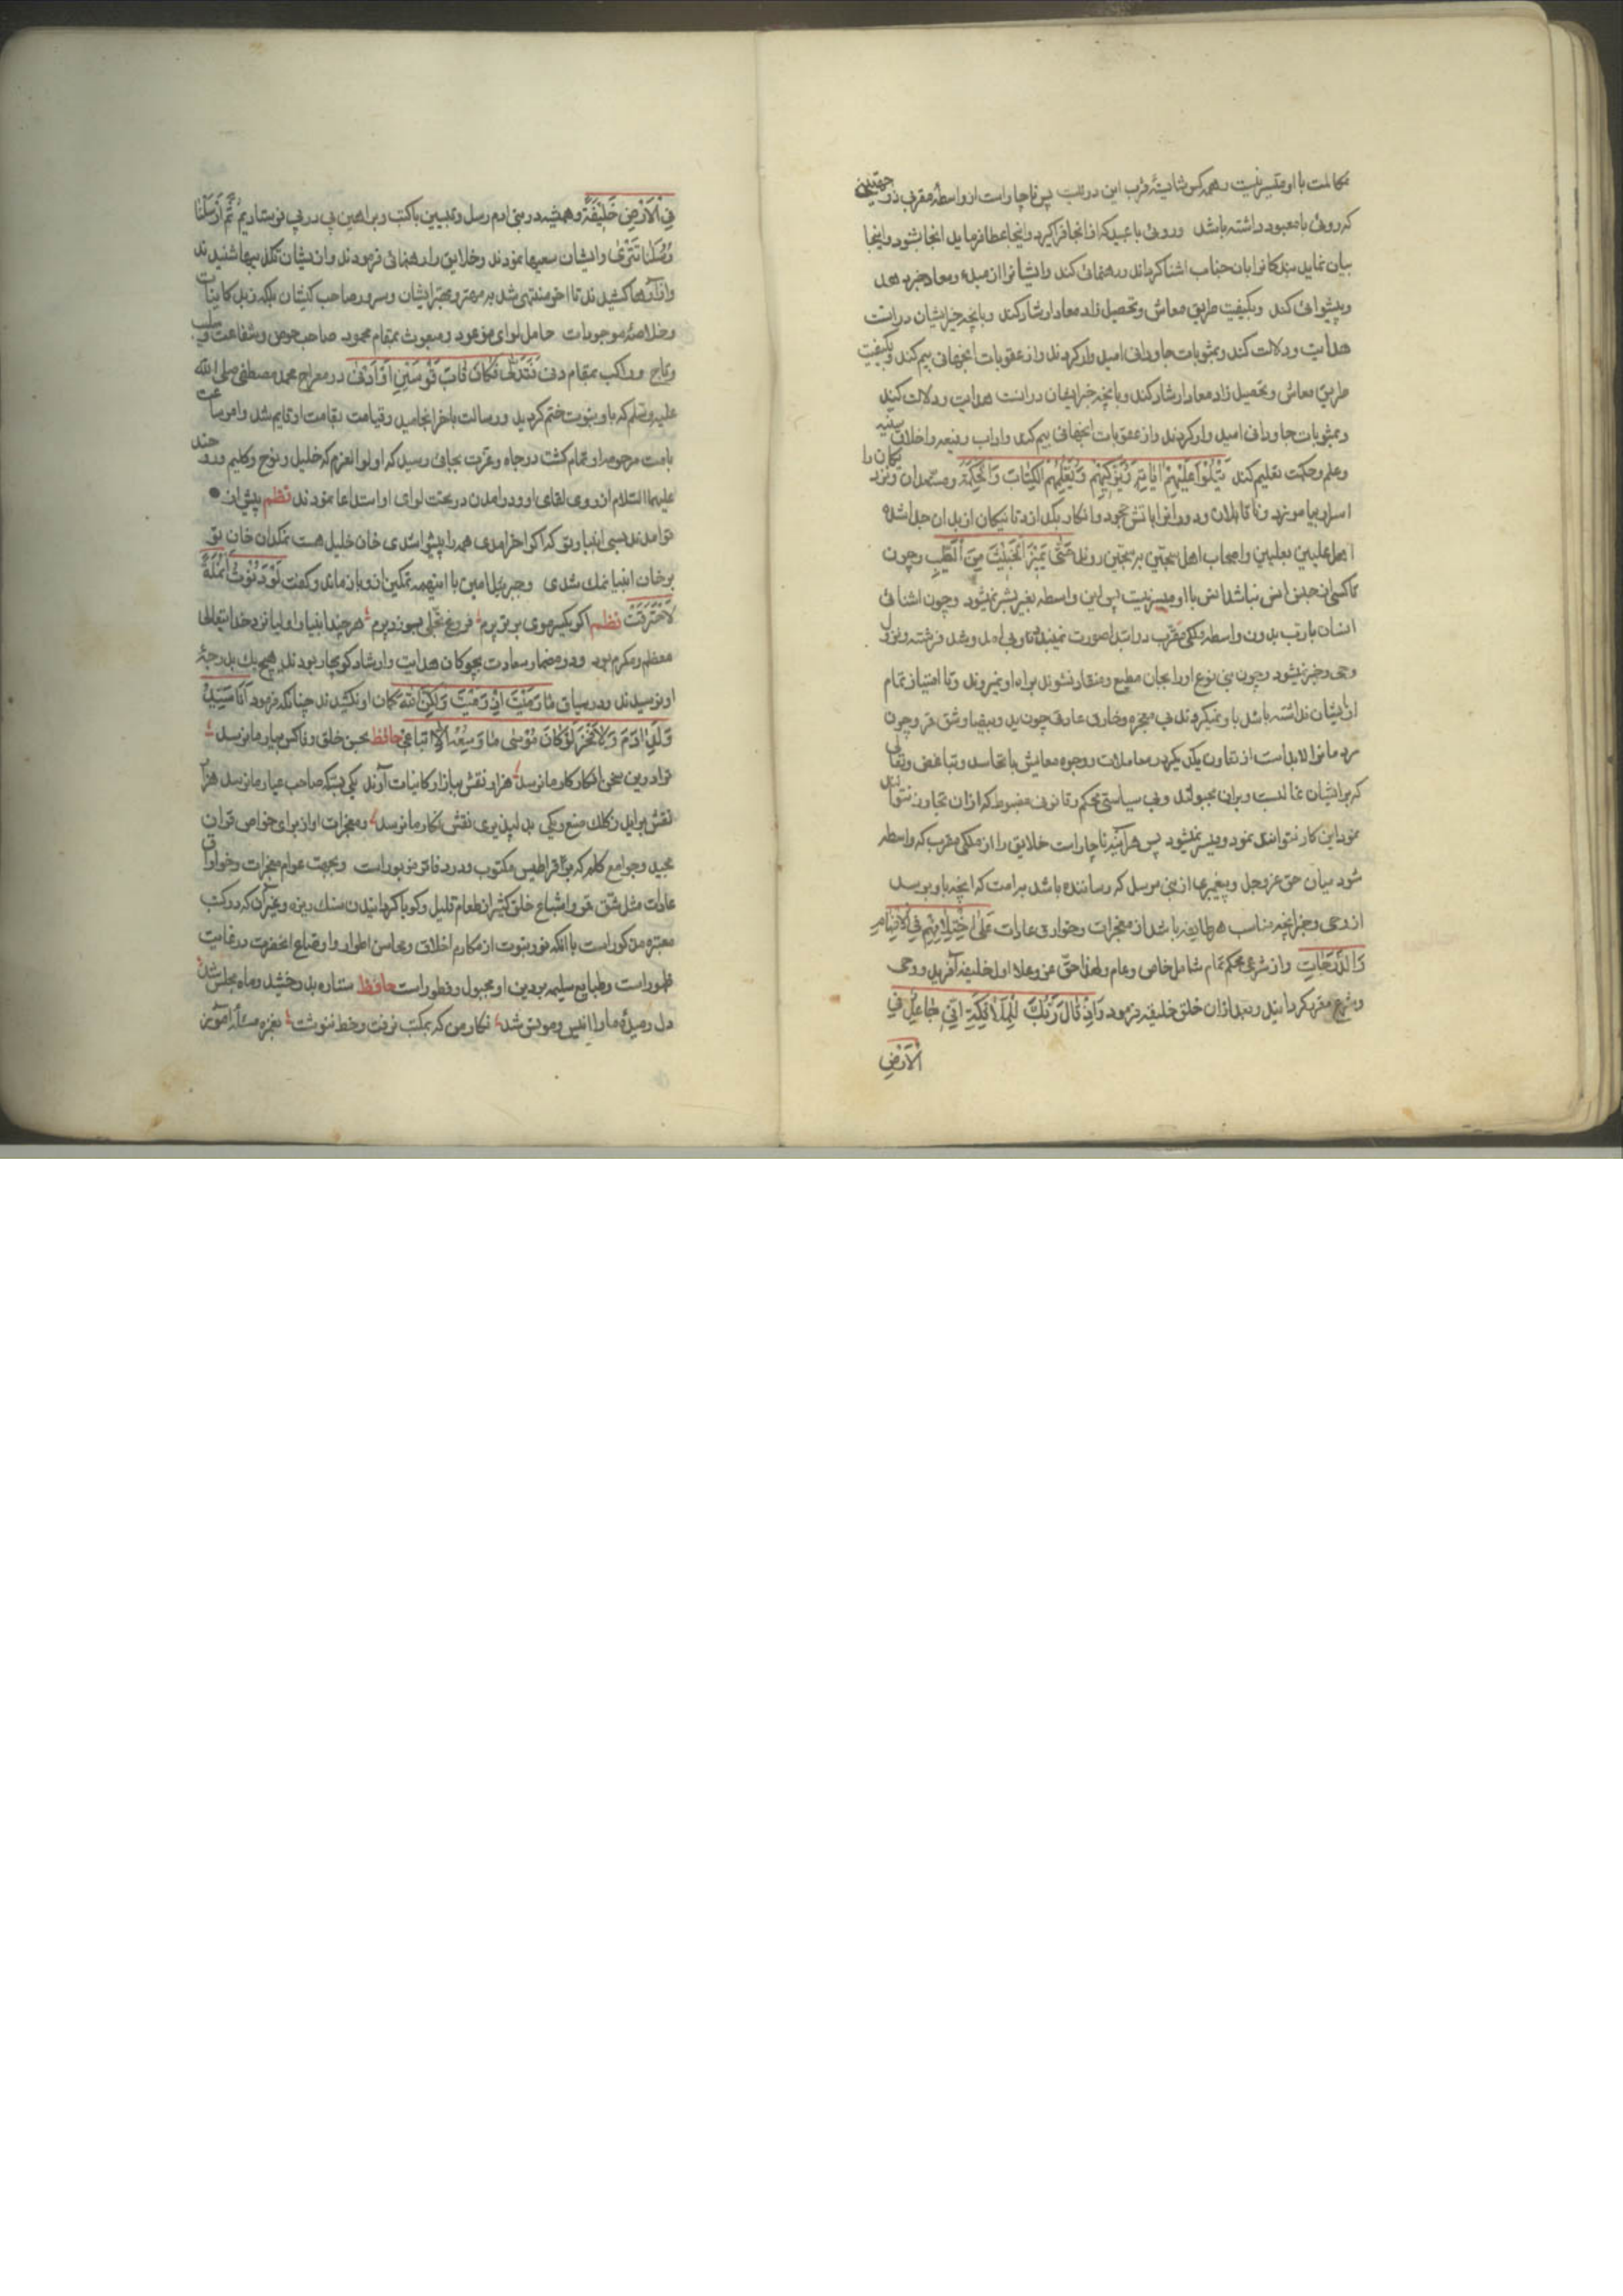 مکالمت با او میسر نیست و همه کس شایستهٔ قرب این دو نیست پس ناچار است از واسطهٔ مقرب ذو جهتین
که روئی با معبود داشته باشد و روئی با عبید که از آنجا فرا گیرد و اینجا عطا فرماید آنجا بشنود و اینجا
بیان نماید بندکانرا بآن جناب آشنا کرداند و رهنمائی کند و ایشانرا از مبدء و معاد خبر دهد
و پیشوائی کند و بکیفیت طریق معاش و تحصیل زاد معاد ارشاد کند و بآنچه خیر ایشان در آنست
هدایت و دلالت کند و بمثوبات جاودانی امیدوار کرداند و از عقوبات آنجهانی بیم کند و بکیفیت
طریق معاش و تحصیل زاد معاد ارشاد کند و بآنچه خیر ایشان در آنست هدایت و دلالت کند
و بمثوبات جاودانی امیدوار کرداند و از عقوبات آنجهانی بیم کند و آداب رفیعه و اخلاق سنیه
و علم و حکمت تعلیم کند یَتْلُوا عَلَیْهِمْ اٰیَاتِهِ وَیُزَکِّیهِمْ وَیُعَلِّمُهُمُ الْکِتَابَ وَالْحِکْمَةَ و مستعدان و نزدیکان را
اسرار بیاموزد و ناقابلان و دورانرا بآتش جحود و انکار بگدازد تا نیکان از بدان جدا شده
اهل علیین بعلیین و اصحاب سجین بسجین روند حَتّٰی یَمِیزَ الْخَبِیثَ مِنَ الطَّیِّبِ و چون
تا کسی از جنس انس نباشد انس با او میسر نیست پس این واسطه بغیر بشر نمیشود و چون آشنائی
انسان با رب بدون واسطهٔ ملکی مقرب در ابتدا صورت نمیبندد و تا وی آمد و شد فرشته و نزول
وحی و خبر نمیشود و چون بنی نوع او را بجان مطیع و منقاد نشوند براه او نمیروند و تا امتیاز تمام
از ایشان نداشته باشد باو نمیکروند بی معجزه و خارق عادتی چون ید بیضا و شق قمر و چون
مردمانرا لابد است از تعاون یکدیکر در معاملات و وجوه معایش با تحاسد و تباغضی و تقاتلی
که بر ایشان غالبست و بر آن مجبولند و بی سیاستی محکم و قانونی مضبوط که از آن تجاوز نتوانند
نمود این کار نتوانند نمود و میسر نمیشود پس هر آینه ناچار است خلایق را از ملکی مقرب که واسطه
شود میان حق عز و جل و پیغمبری از بنی مرسل که رساننده باشد بامت که آنچه باو برسد
از وحی و خبر آنچه مناسب هر طایفه باشد از معجزات و خوارق عادات عَلٰی اخْتِلَافِهِمْ فِی الْاَفْهَامِ
وَالدَّرَجَاتِ و از شرعی محکم تمام شامل خاص و عام و لهذا حقّ عز و علا اول خلیفه آفرید و وحی
و شرع مقرر کردانید و بعد از آن خلق خلیفه فرمود وَاِذْ قَالَ رَبُّکَ لِلْمَلَائِکَةِ اِنِّی جَاعِلٌ فِی
الْاَرْضِ
فِی الْاَرْضِ خَلِیفَةً و همیشه در بنی آدم رسل و نبیین با کتب و براهین پی در پی فرستادیم ثُمَّ اَرْسَلْنَا
رُسُلَنَا تَتْرٰی و ایشان سعیها نمودند و خلایق را رهنمائی فرمودند و از ایشان تکذیبها شنیدند
و آزارها کشیدند تا آخر منتهی شد به مهتر و بهتر ایشان و سرور صاحب کیشان بلکه زبدهٔ کاینات
و خلاصهٔ موجودات حامل لوای موعود و مبعوث بمقام محمود صاحب حوض و شفاعت و سلب
و تاج و راکب بمقام دنی فَتَدَلّٰی فَکَانَ قَابَ قَوْسَیْنِ اَوْ اَدْنٰی در معراج محمد مصطفی صلی الله
علیه و سلم که باو نبوت ختم کردید و رسالت بآخر انجامید و قیامت بقامت او قایم شد و امور ساعت
بامت مرحومهٔ او تمام کشت در جاه و عزت بجائی رسید که اولو العزم که خلیل و نوح و کلیم و روح
علیهم السلام آرزوی لقای او و درآمدن در تحت لوای او استدعا نمودند نظم پیش از
تو آمدند بسی انبیا و تو کر آخر آمدی همه را پیشوا شدی خان خلیل هست نمکدان خان تو
بر خان انبیا نمک شدی و جبرئیل امین با اینهمه تمکین ازو باز ماند و کفت لَوْ دَنَوْتُ اَنْمُلَةً
لَاحْتَرَقْتُ نظم اکر یکسر موی برتر پرم فروغ تجلی بسوزد پرم هر چند انبیا و اولیا نزد خدایتعالی
معظم و مکرم بود و در مضمار سعادت بچوکان هدایت و ارشاد کوی بربودند هیچ یک بدرجهٔ
او نرسیدند و در سیاق مَا رَمَیْتَ اِذْ رَمَیْتَ وَلٰکِنَّ اللهَ کمان او نکشیدند چنانکه فرمود اَنَا سَیِّدُ
وُلْدِ اٰدَمَ وَلَا فَخْرَ لَوْ کَانَ مُوسٰی مَا وَسِعَهُ اِلَّا اتِّبَاعِی حافظ بحسن خلق و وفا کس بیار ما نرسد
ترا درین سخن انکار کار ما نرسد هزار نقش ببازار کاینات آرند یکی بسکهٔ صاحب عیار ما نرسد هزار
نقش برآید ز کلک صنع و یکی بدلپذیری نقش نکار ما نرسد و معجزات او از برای خواص قرآن
مجید و جوامع کلم که بر قراطیس مکتوب و در دفاتر مزبور است و بجهت عوام معجزات و خوارق
عادات مثل شق قمر و اشباع خلق کثیر از طعام قلیل و کویا کردانیدن سنک ریزه و غیر آن که در کتب
معتبره مذکور است با آنکه نور نبوت از مکارم اخلاق و محاسن اطوار و اوضاع آنحضرت در غایت
ظهور است و طبایع سلیمه بر دین او مجبول و مفطور است حافظ ستاره بدرخشید و ماه مجلس شد
دل رمیدهٔ ما را انیس و مونس شد نکار من که بمکتب نرفت و خط ننوشت بغمزه مسئله آموز